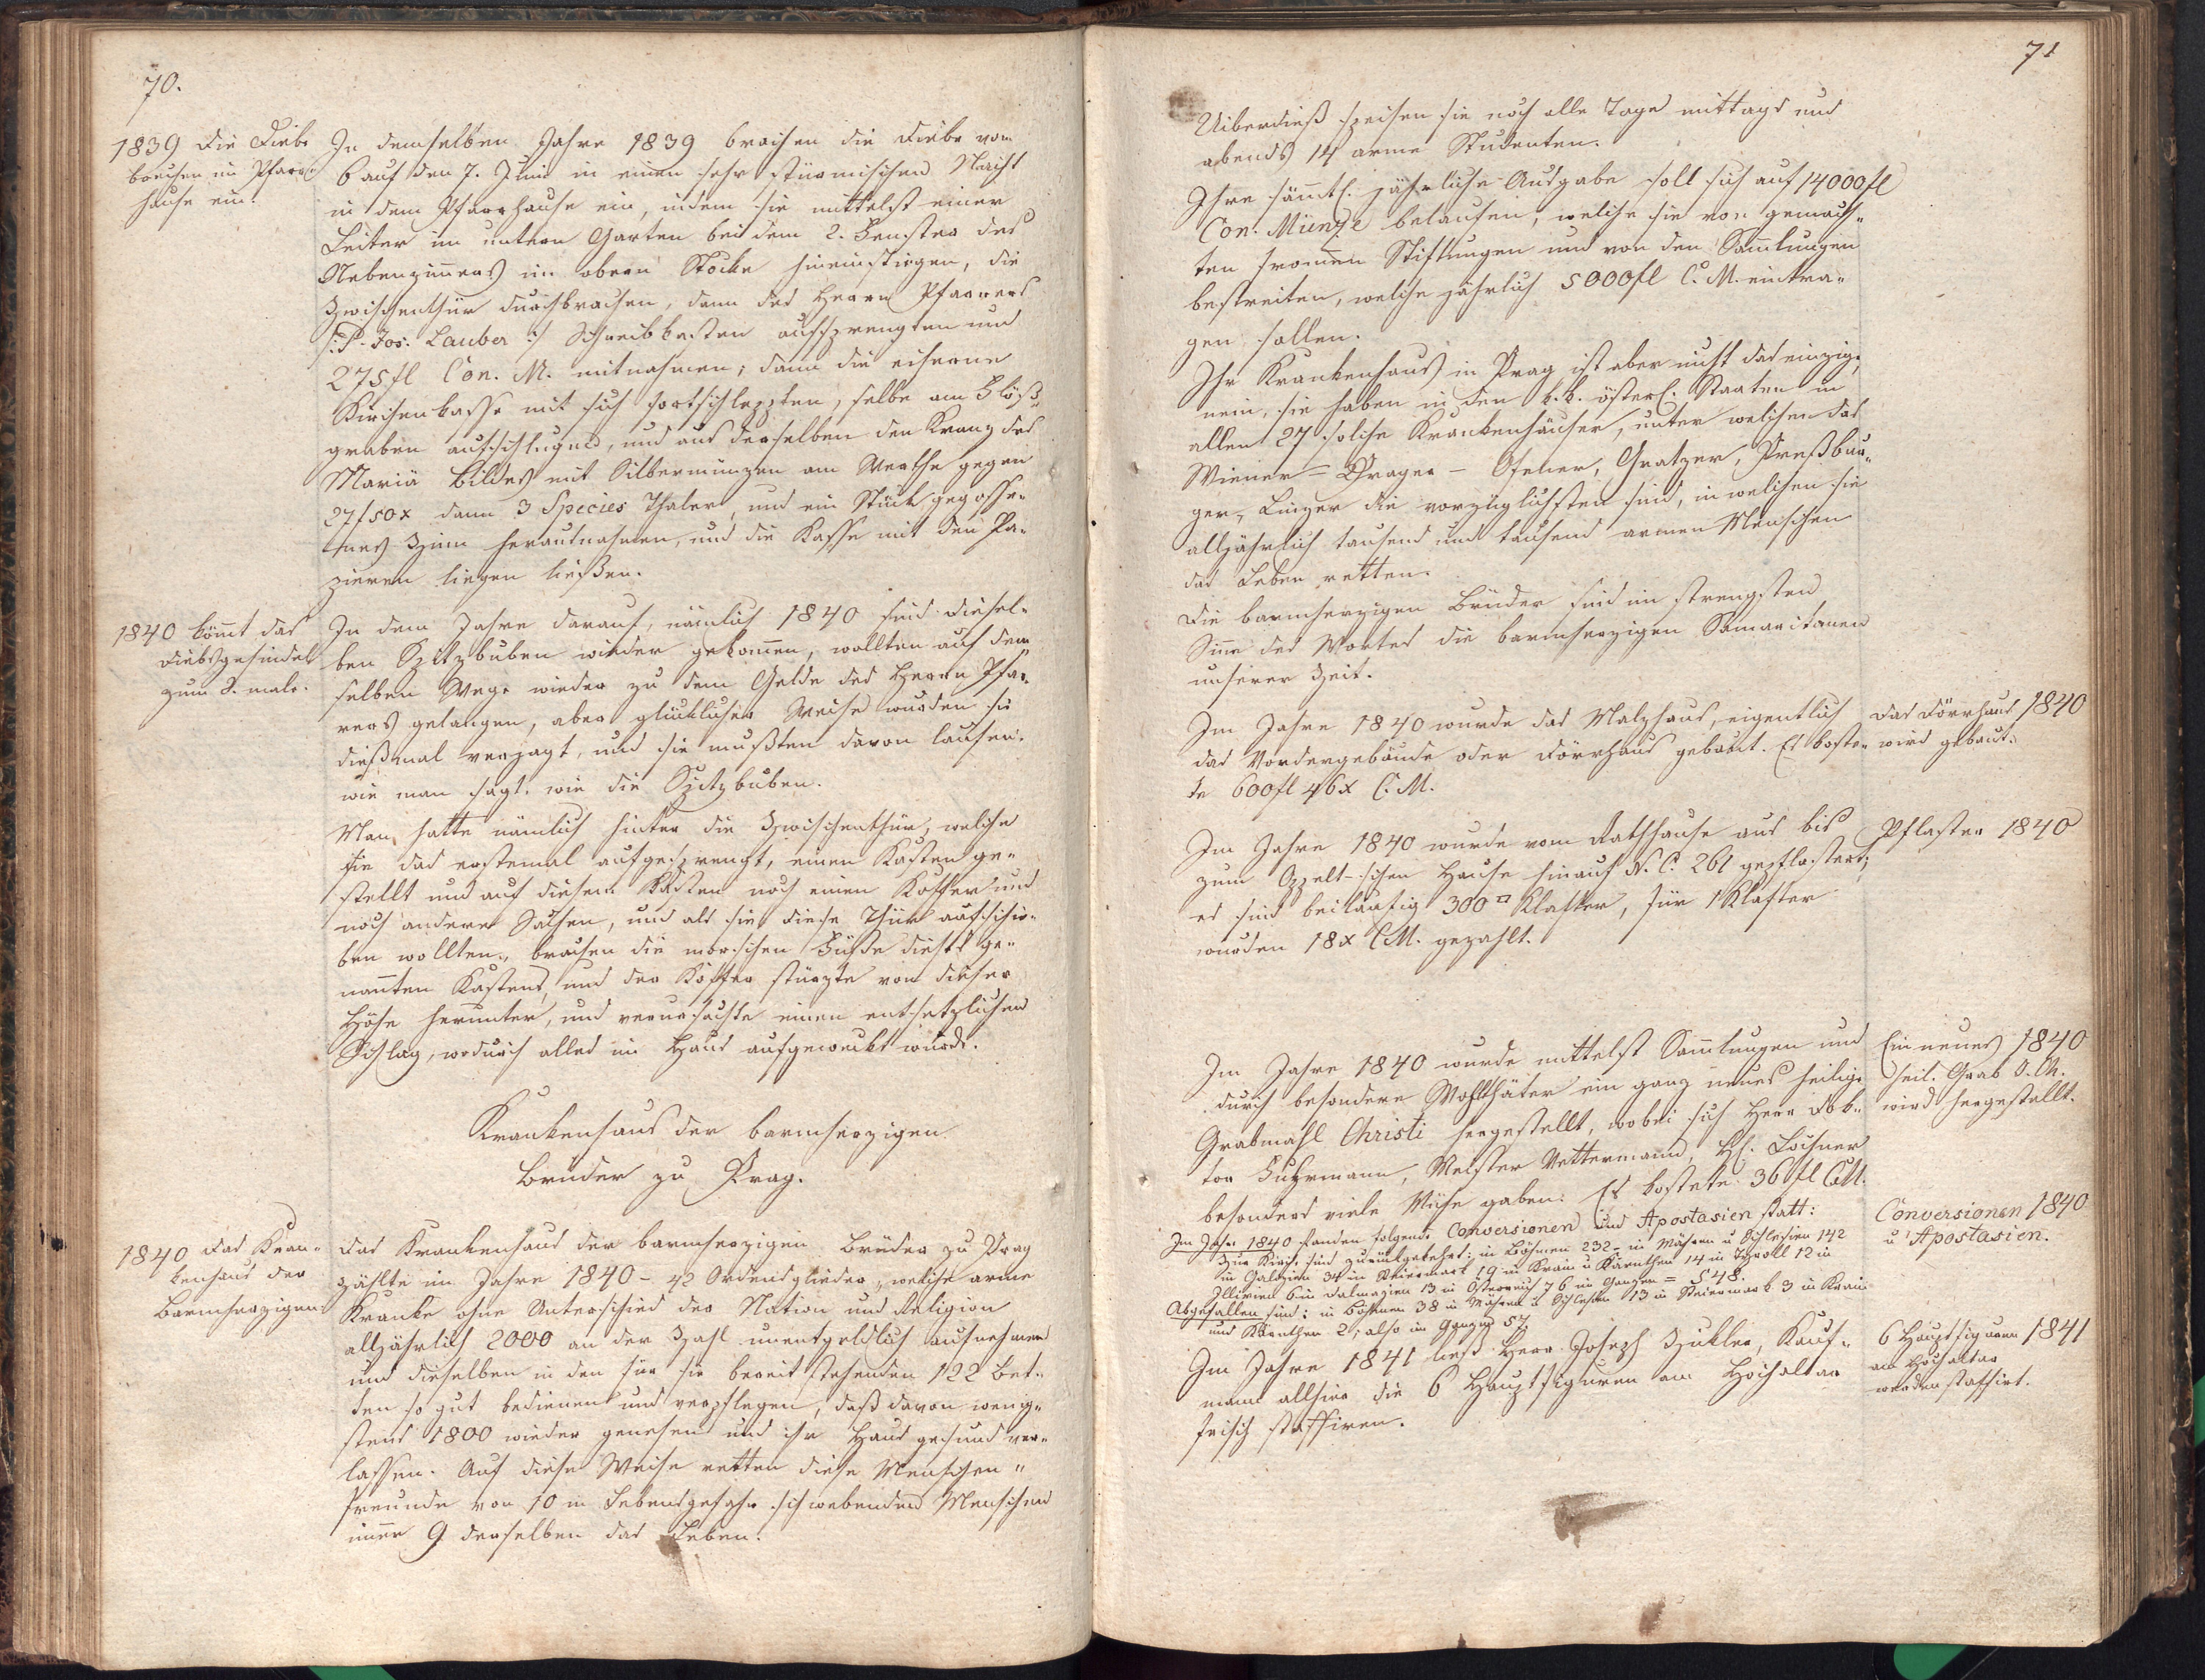 70.
1839 die Diebe
brechen im Pfarr-
hause ein.
In demselben Jahre 1839 brachen die Diebe vom
6 auf den 7. Juni in einer sehr stürmischen Nacht
in dem Pfarrhause ein, indem sie mittelst einer
Leiter im untern Garten bei dem 2. Fenster des
Nebenzimers im obern Stocke hineinstiegen, die
Zwischenthür durchbrachen, dann des Herrn Pfarrers
/: P. Jos. Lauber :/ Schreibkasten aufsprengten und
275 fl Con. M. mitnahmen; dann die eiserne
Kirchenkasse mit sich fortschleppten, selbe am Flöß-
graben aufschlugen, und aus derselben den Kranz des
Mariä Bildes mit Silbermünzen am Werthe gegen
27 f 50 x dann 3 Species Thaler, und ein Stück gegosse-
nes Zinn herausnahmen, und die Kasse mit den Pa-
pieren liegen ließen.
1840 kömt das
Diebsgesindel
zum 2. male.
In dem Jahre darauf, nämlich 1840 sind diesel-
ben Spitzbuben wieder gekomen, wollten auf dem
selben Wege wieder zu dem Gelde des Herrn Pfar-
rers gelangen, aber glücklicher Weise wurden sie
dießmal verjagt, und sie mußten davon laufen,
wie man sagt: wie die Spitzbuben.
Man hatte nämlich hinter die Zwischenthür, welche
sie das erstemal aufgesprengt, einen Kasten ge-
stellt und auf diesem Kasten noch einen Koffer und
noch andere Sachen, und als sie diese Thür aufschie-
ben wollten, brachen die morschen Füße dieses ge-
nannten Kastens, und der Koffer stürzte von dieser
Höhe herunter, und verursachte einen entsetzlichen
Schlag, wodurch alles im Haus aufgeweckt wurde.
Krankenhaus der barmherzigen
Brüder zu Prag.
1840 das Kran-
kenhaus der
Barmherzigen
Das Krankenhaus der barmherzigen Brüder zu Prag
zählte im Jahre 1840 - 42 Ordensglieder, welche arme
Kranke ohne Unterschied der Nation und Religion
alljährlich 2000 an der Zahl unentgeldlich aufnehmen
und dieselben in den für sie bereit stehenden 122 Bet-
ten so gut bedienen und verpflegen, daß davon wenig-
stens 1800 wieder genesen und ihr Haus gesund ver-
lassen. Auf diese Weise retten diese Menschen-
freunde von 10 in Lebensgefahr schwebenden Menschen
imer 9 derselben das Leben.
71
Uiberdieß speisen sie noch alle Tage mittags und
abends 14 arme Studenten.
Ihre sämtl. jährliche Ausgabe soll sich auf 14000 fl
Con. Münze belaufen, welche sie von gemach-
ten fromen Stiftungen und von den Samlungen
bestreiten, welche jährlich 5000 fl C. M. eintra-
gen sollen.
Ihr Krankenhaus in Prag ist aber nicht das einzige,
nein, sie haben in den k. k. österl. Staaten in
allen 27 solche Krankenhäuser, unter welchen das
Wiener- Prager- Ofener, Gratzer, Preßbur-
ger, Linzer die vorzüglichsten sind, in welchen sie
alljährlich tausend und tausend armen Menschen
das Leben retten.
Die barmherzigen Brüder sind im strengsten
Sinne des Wortes die barmherzigen Samaritanen
unserer Zeit.
Im Jahre 1840 wurde das Malzhaus, eigentlich
das Vordergebäude oder Dörrhaus gebaut. Es koste-
te 600 fl 46 x C. M.
Das Dörrhaus 1840
wird gebaut.
Im Jahre 1840 wurde vom Rathhause aus bis
zum Oppelt-schen Hause hinauf N. C. 261 gepflastert;
es sind beiläufig 300 □ Klafter, für 1 Klafter
wurden 18 x CM. gezahlt.
Pflaster 1840
Im Jahre 1840 wurde mittelst Samlungen und
durch besondere Wohlthäter ein ganz neues heilige
Grabmahl Christi hergestellt, wobei sich Herr Dok-
tor Fuhrmann, Meister Vettermann, H. Lochner
besonders viele Mühe gaben. Es kostete 36 fl CM.
Ein neues 1840
heil. Grab
wird hergestellt.
Im Jahr 1840 fanden folgende Conversionen und Apostasien statt:
Zur Kirche sind zurückgekehrt: in Böhmen 232 - in Mähren u Schlesien 142
in Galizien 34 in Steiermark 19 in Krain u Kärnthen 14 in Tyroll 12 in
Illirien 6 in Dalmazien 13 in Österreich 76 im Ganzen = 548.
Abgefallen sind: in Böhmen 38 in Mähren u Schlesien 13 in Steiermark 3 in Krain
und Kärnthen 2, also im Ganzen 57.
Conversionen 1840
u Apostasien.
Im Jahre 1841 ließ Herr Joseph Kauf-
mann allhier die 6 Hauptfiguren am Hochaltar
frisch staffiren.
6 Hauptfiguren 1841
am Hochaltar
werden staffirt.